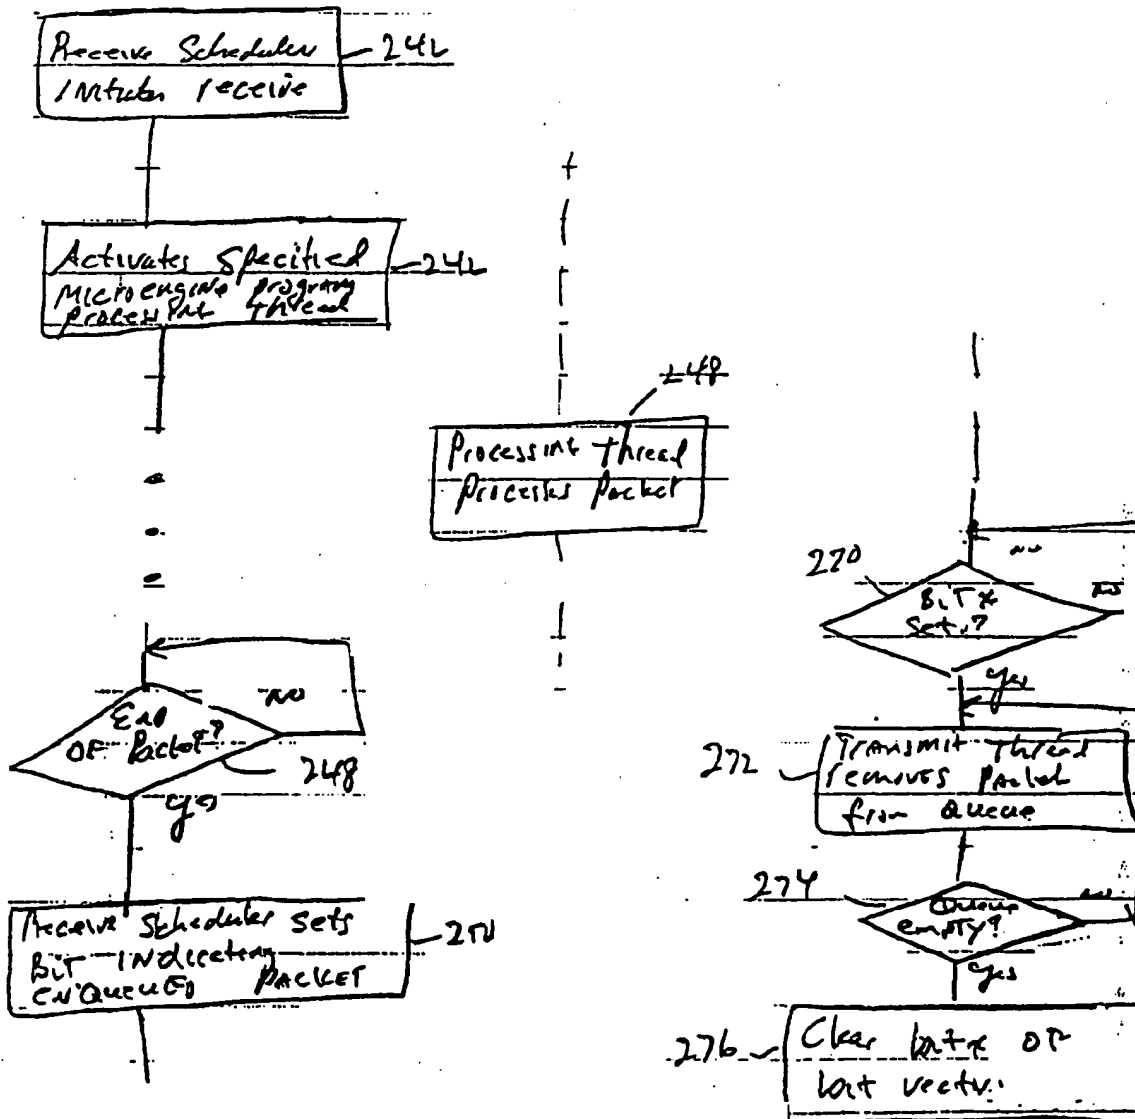 Receive Scheduler
Initiates receive
242
Activates Specified
Microengine program
processing thread
242
248
Processing thread
Processes Packet
End
OF Packet?
NO
248
yes
Receive Scheduler sets
BIT INdicating
ENQUEUED PACKET
250
270
BIT x
Set?
NO
NO
yes
272
TRANSMIT Thread
removes Packet
from Queue
274
Queue
empty?
NO
yes
276
Clear bit x OF
bit vector.